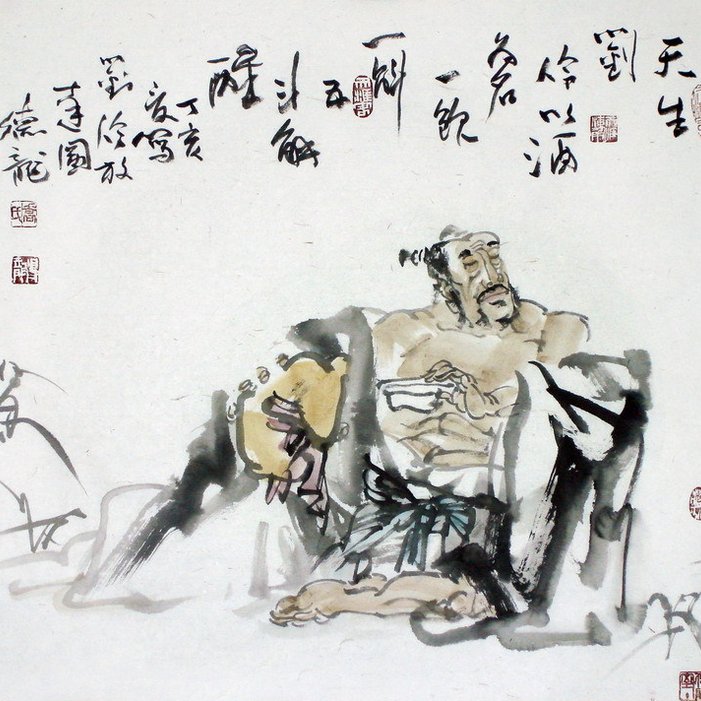 天生
劉
伶以酒
名
一飲
一斛
五
斗解
酲
丁亥
夏寫
劉伶放
達圖
德龍